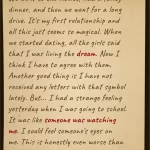 dinner, and then we went for a long
drive. It's my first relationship and
all this just seems so magical. When
we started dating, all the girls said
that I was living the dream. Now I
think I have to agree with them.
Another good thing is I have not
received any letters with that symbol
lately. But... I had a strange feeling
yesterday when I was going to school.
It was like someone was watching
me. I could feel someone's eyes on
me. This is honestly even worse than